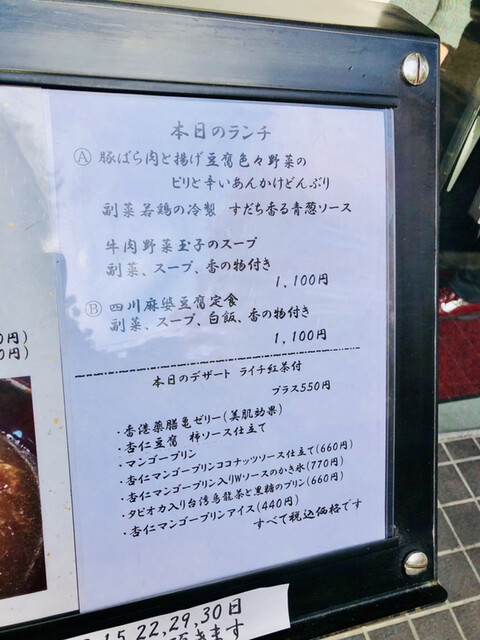 本日のランチ
Ⓐ 豚ばら肉と揚げ豆腐色々野菜の
ピリと辛いあんかけどんぶり
副菜若鶏の冷製 すだち香る青葱ソース
牛肉野菜玉子のスープ
副菜、スープ、香の物付き
1,100円
Ⓑ 四川麻婆豆腐定食
副菜、スープ、白飯、香の物付き
1,100円
本日のデザート ライチ紅茶付
プラス550円
・香港薬膳亀ゼリー(美肌効果)
・杏仁豆腐 柿ソース仕立て
・マンゴープリン
・杏仁マンゴープリンココナッツソース仕立て(660円)
・杏仁マンゴープリン入りWソースのかき氷(770円)
・タピオカ入り台湾烏龍茶と黒糖のプリン(660円)
・杏仁マンゴープリンアイス(440円)
すべて税込価格です
0円)
0円)
15,22,29,30日
きます